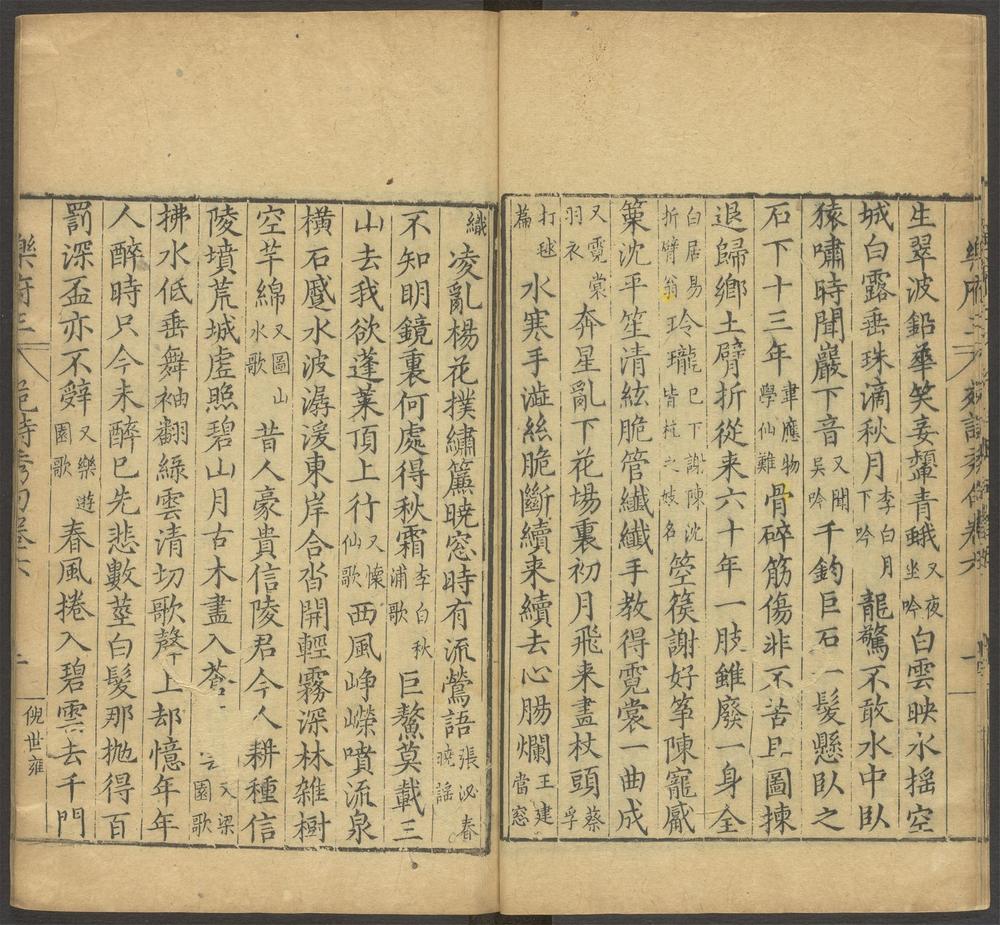 生翠波鉛華笑妾顰青蛾又夜坐吟白雲映水揺空
城白露垂珠滴秋月李白月下吟龍驚不敢水中臥
猿嘯時聞巖下音又聞吳吟千鈞巨石一髮懸臥之
石下十三年韋應物學仙難骨碎筋傷非不苦且圖揀
退歸鄉土臂折從来六十年一肢雖廢一身全
白居易折臂翁玲瓏巳下謝陳沈皆杭之妓名箜篌謝好筝陳寵觱
篥沈平笙清絃脆管纖纖手教得霓裳一曲成
又霓裳羽衣奔星亂下花場裏初月飛来畫杖頭蔡孚
打毬篇水寒手澁絲脆斷續来續去心腸爛王建當窓
織凌亂楊花撲繡簾曉窓時有流鶯語張泌春曉謡
不知明鏡裏何處得秋霜李白秋浦歌巨鰲莫載三
山去我欲蓬莱頂上行又懷仙歌西風峥嶸噴流泉
橫石蹙水波潺湲東岸合沓開輕霧深林雜樹
空芊綿又圖山水歌昔人豪貴信陵君今人耕種信
陵墳荒城虚照碧山月古木盡入蒼又梁園歌
拂水低垂舞袖翻綠雲清切歌聲上却憶年年
人醉時只今未醉巳先悲數莖白髮那抛得百
罰深盃亦不辤又樂遊園歌春風捲入碧雲去千門
樂府三
倪世雍